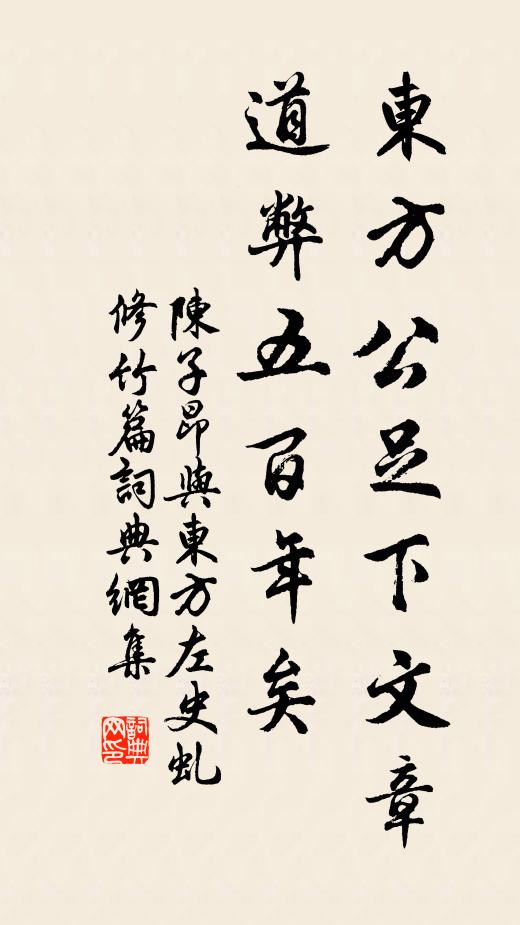 東方公足下文章
道弊五百年矣
陳子昂與東方左史虬
修竹篇詞典網集
詞典
网印